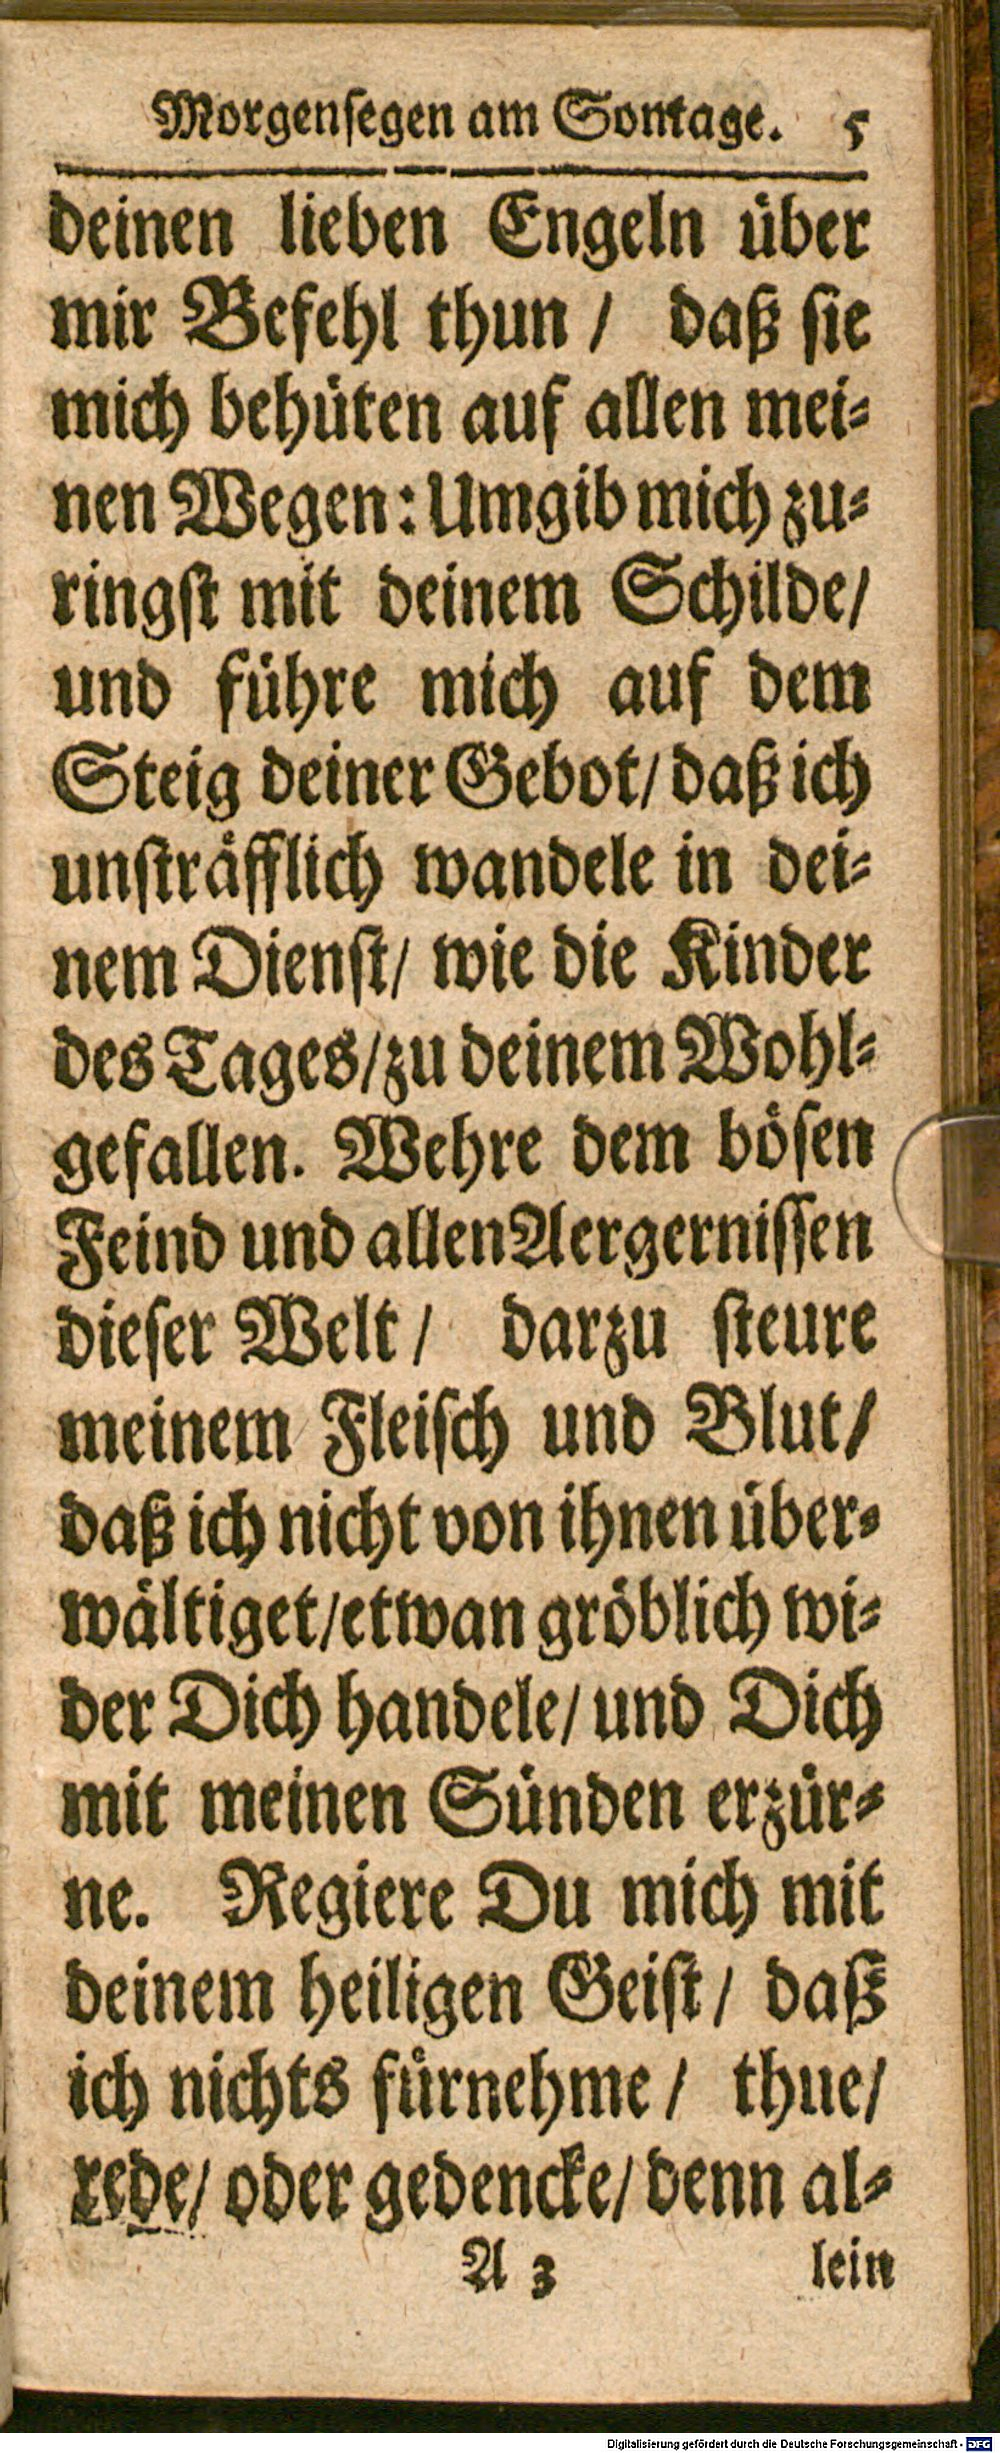 Morgensegen am Sontage. 5
deinen lieben Engeln über
mir Befehl thun / daß sie
mich behüten auf allen mei-
nen Wegen: Umgib mich zu-
ringst mit deinem Schilde/
und führe mich auf dem
Steig deiner Gebot/ daß ich
unsträfflich wandele in dei-
nem Dienst/ wie die Kinder
des Tages/ zu deinem Wohl-
gefallen. Wehre dem bösen
Feind und allen Aergernissen
dieser Welt / darzu steure
meinem Fleisch und Blut/
daß ich nicht von ihnen über-
wältiget/ etwan gröblich wi-
der Dich handele/ und Dich
mit meinen Sünden erzür-
ne. Regiere Du mich mit
deinem heiligen Geist / daß
ich nichts fürnehme / thue/
rede/ oder gedencke/ denn al-
A 3 lein
Digitalisierung gefördert durch die Deutsche Forschungsgemeinschaft - DFG